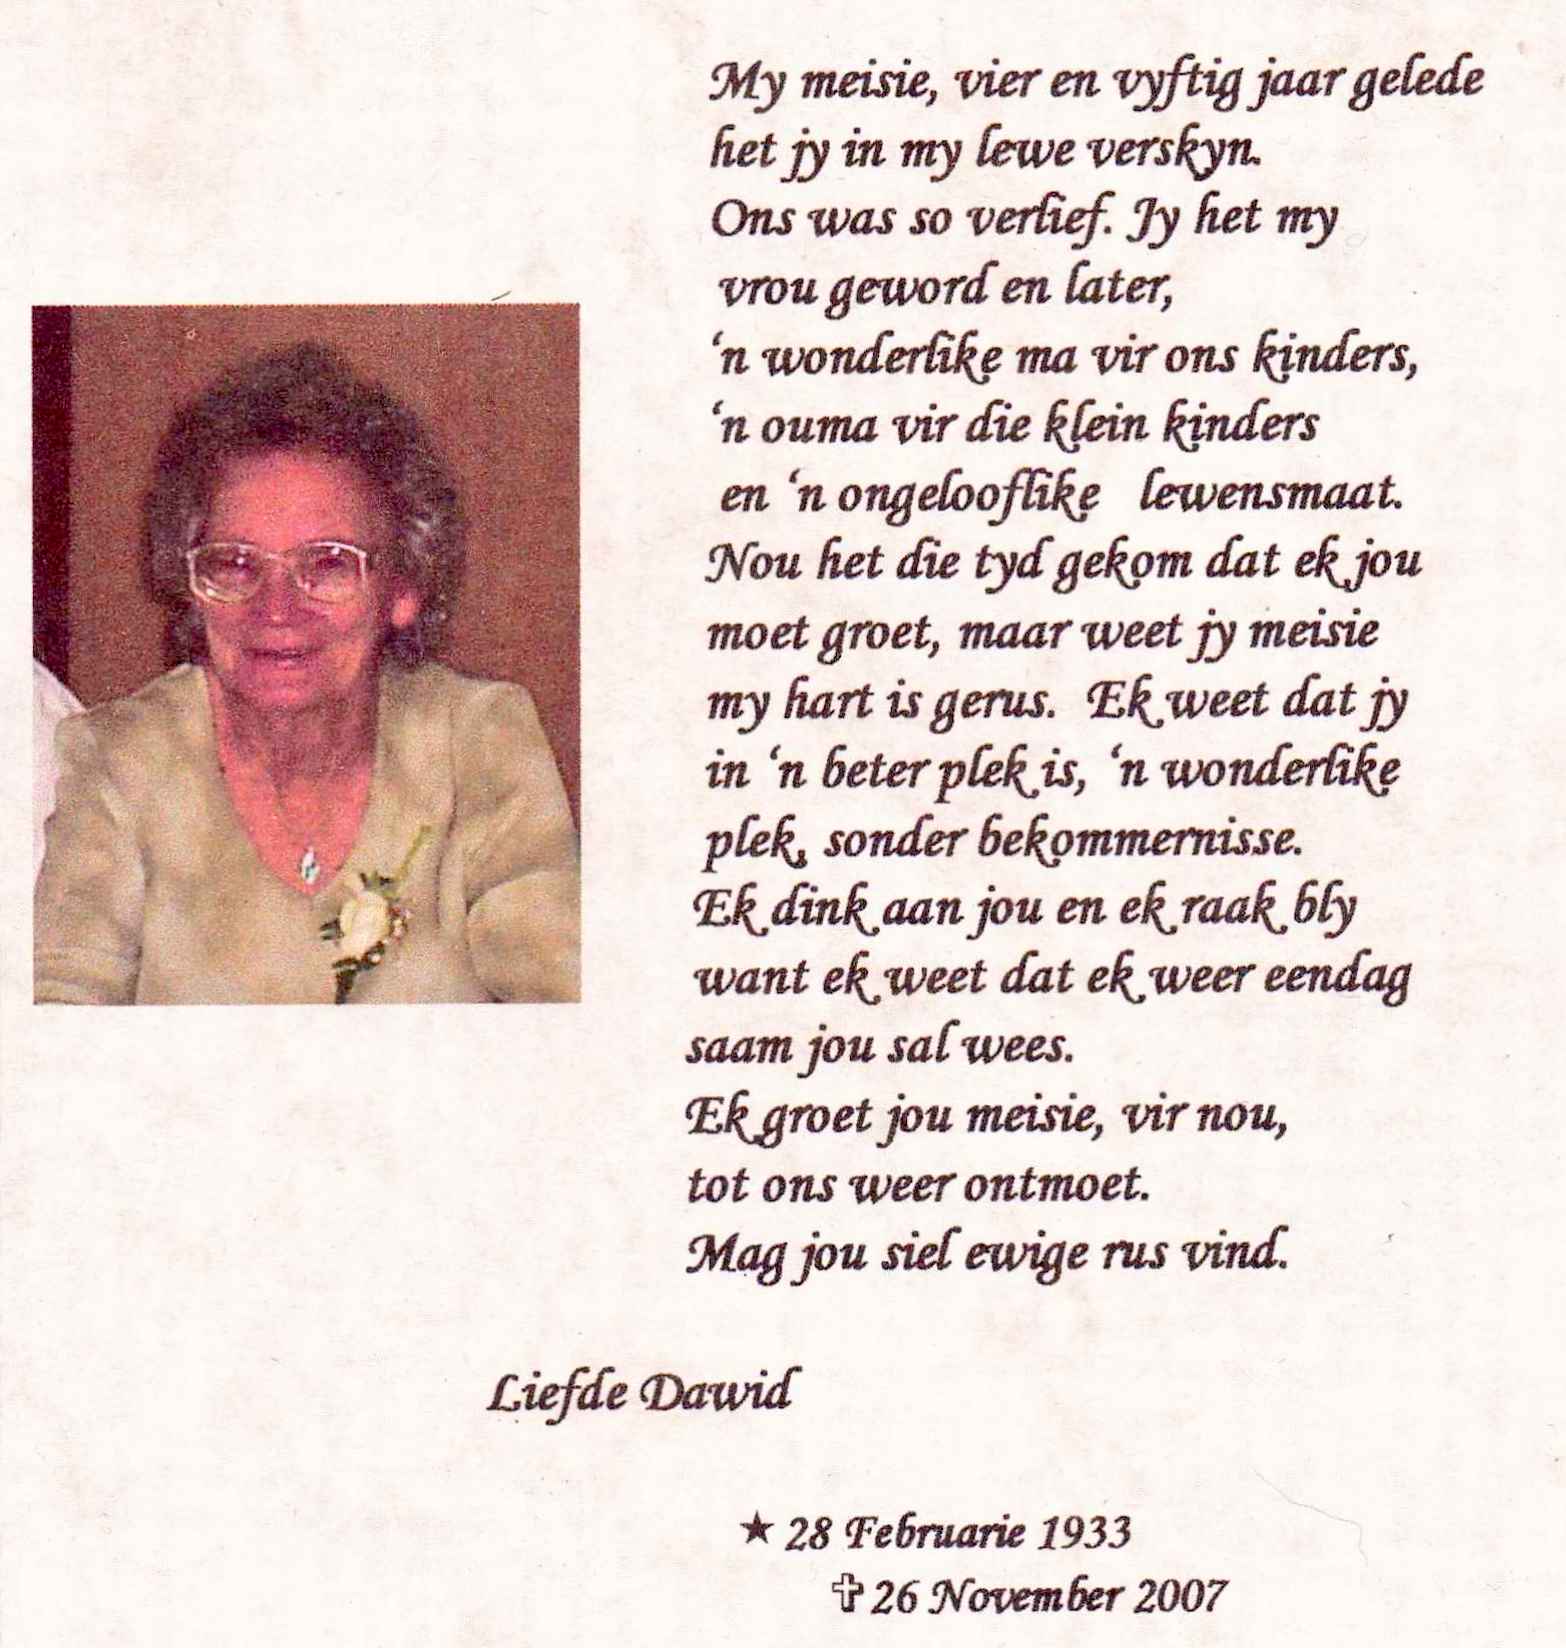 My meisie, vier en vyftig jaar gelede
het jy in my lewe verskyn.
Ons was so verlief. Jy het my
vrou geword en later,
‘n wonderlike ma vir ons kinders,
‘n ouma vir die klein kinders
en ‘n ongelooflike lewensmaat.
Nou het die tyd gekom dat ek jou
moet groet, maar weet jy meisie
my hart is gerus. Ek weet dat jy
in ‘n beter plek is, ‘n wonderlike
plek, sonder bekommernisse.
Ek dink aan jou en ek raak bly
want ek weet dat ek weer eendag
saam jou sal wees.
Ek groet jou meisie, vir nou,
tot ons weer ontmoet.
Mag jou siel ewige rus vind.
Liefde Dawid
★ 28 Februarie 1933
✞ 26 November 2007